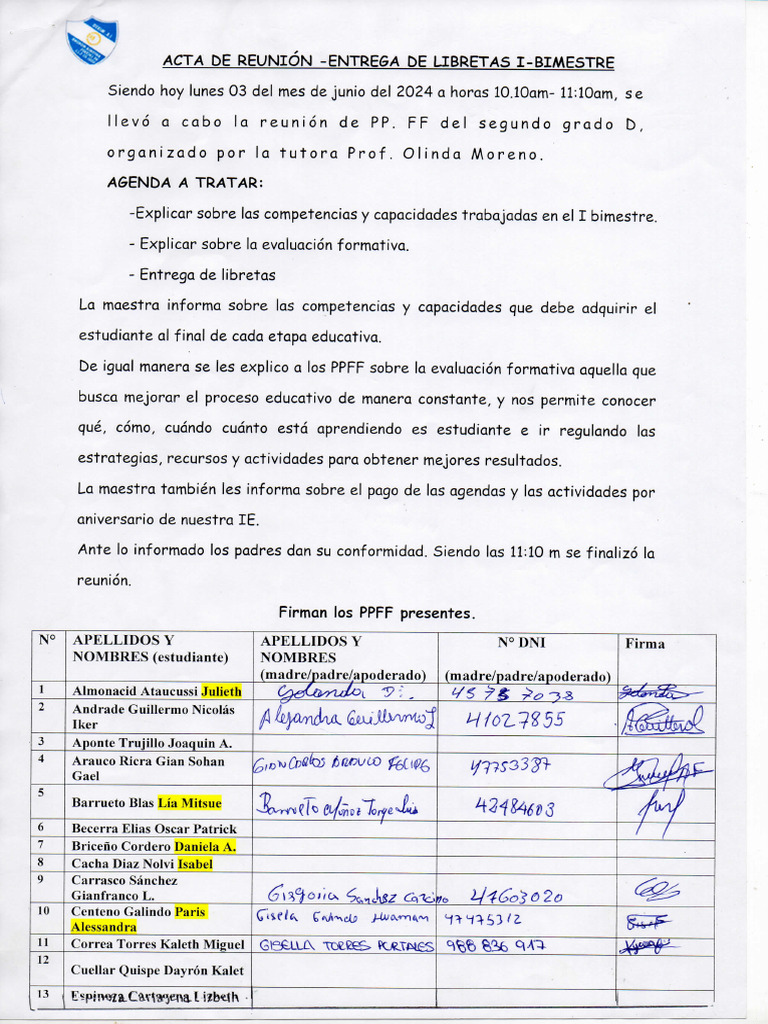 ACTA DE REUNIÓN -ENTREGA DE LIBRETAS I-BIMESTRE
Siendo hoy lunes 03 del mes de junio del 2024 a horas 10.10am- 11:10am, se
llevó a cabo la reunión de PP. FF del segundo grado D,
organizado por la tutora Prof. Olinda Moreno.
AGENDA A TRATAR:
-Explicar sobre las competencias y capacidades trabajadas en el I bimestre.
- Explicar sobre la evaluación formativa.
- Entrega de libretas
La maestra informa sobre las competencias y capacidades que debe adquirir el
estudiante al final de cada etapa educativa.
De igual manera se les explico a los PPFF sobre la evaluación formativa aquella que
busca mejorar el proceso educativo de manera constante, y nos permite conocer
qué, cómo, cuándo cuánto está aprendiendo es estudiante e ir regulando las
estrategias, recursos y actividades para obtener mejores resultados.
La maestra también les informa sobre el pago de las agendas y las actividades por
aniversario de nuestra IE.
Ante lo informado los padres dan su conformidad. Siendo las 11:10 m se finalizó la
reunión.
Firman los PPFF presentes.
N° APELLIDOS Y NOMBRES (estudiante) APELLIDOS Y NOMBRES (madre/padre/apoderado) N° DNI (madre/padre/apoderado) Firma
1 Almonacid Ataucussi Julieth Yolanda 45757038
2 Andrade Guillermo Nicolás Iker Alejandra Guillermo 41027855
3 Aponte Trujillo Joaquin A.
4 Arauco Ricra Gian Sohan Gael GIANCARLOS ARAUCO FELIPE 47753387
5 Barrueto Blas Lía Mitsue Barrueto Muñoz Jorge Luis 42484603
6 Becerra Elias Oscar Patrick
7 Briceño Cordero Daniela A.
8 Cacha Diaz Nolvi Isabel
9 Carrasco Sánchez Gianfranco L. Gregoria Sanchez 47603020
10 Centeno Galindo Paris Alessandra Gisela Galindo Huaman 47475312
11 Correa Torres Kaleth Miguel GISELLA TORRES PORTALES 988 836 917
12 Cuellar Quispe Dayrón Kalet
13 Espinoza Cartagena Lizbeth